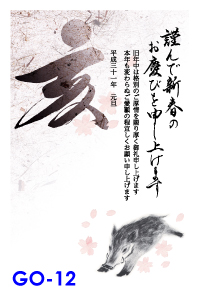 謹んで新春の
お慶びを申し上げます
旧年中は格別のご厚情を賜り厚く御礼申し上げます
本年も変わらぬご愛顧の程宜しくお願い申し上げます
平成三十一年 元旦
亥
GO-12